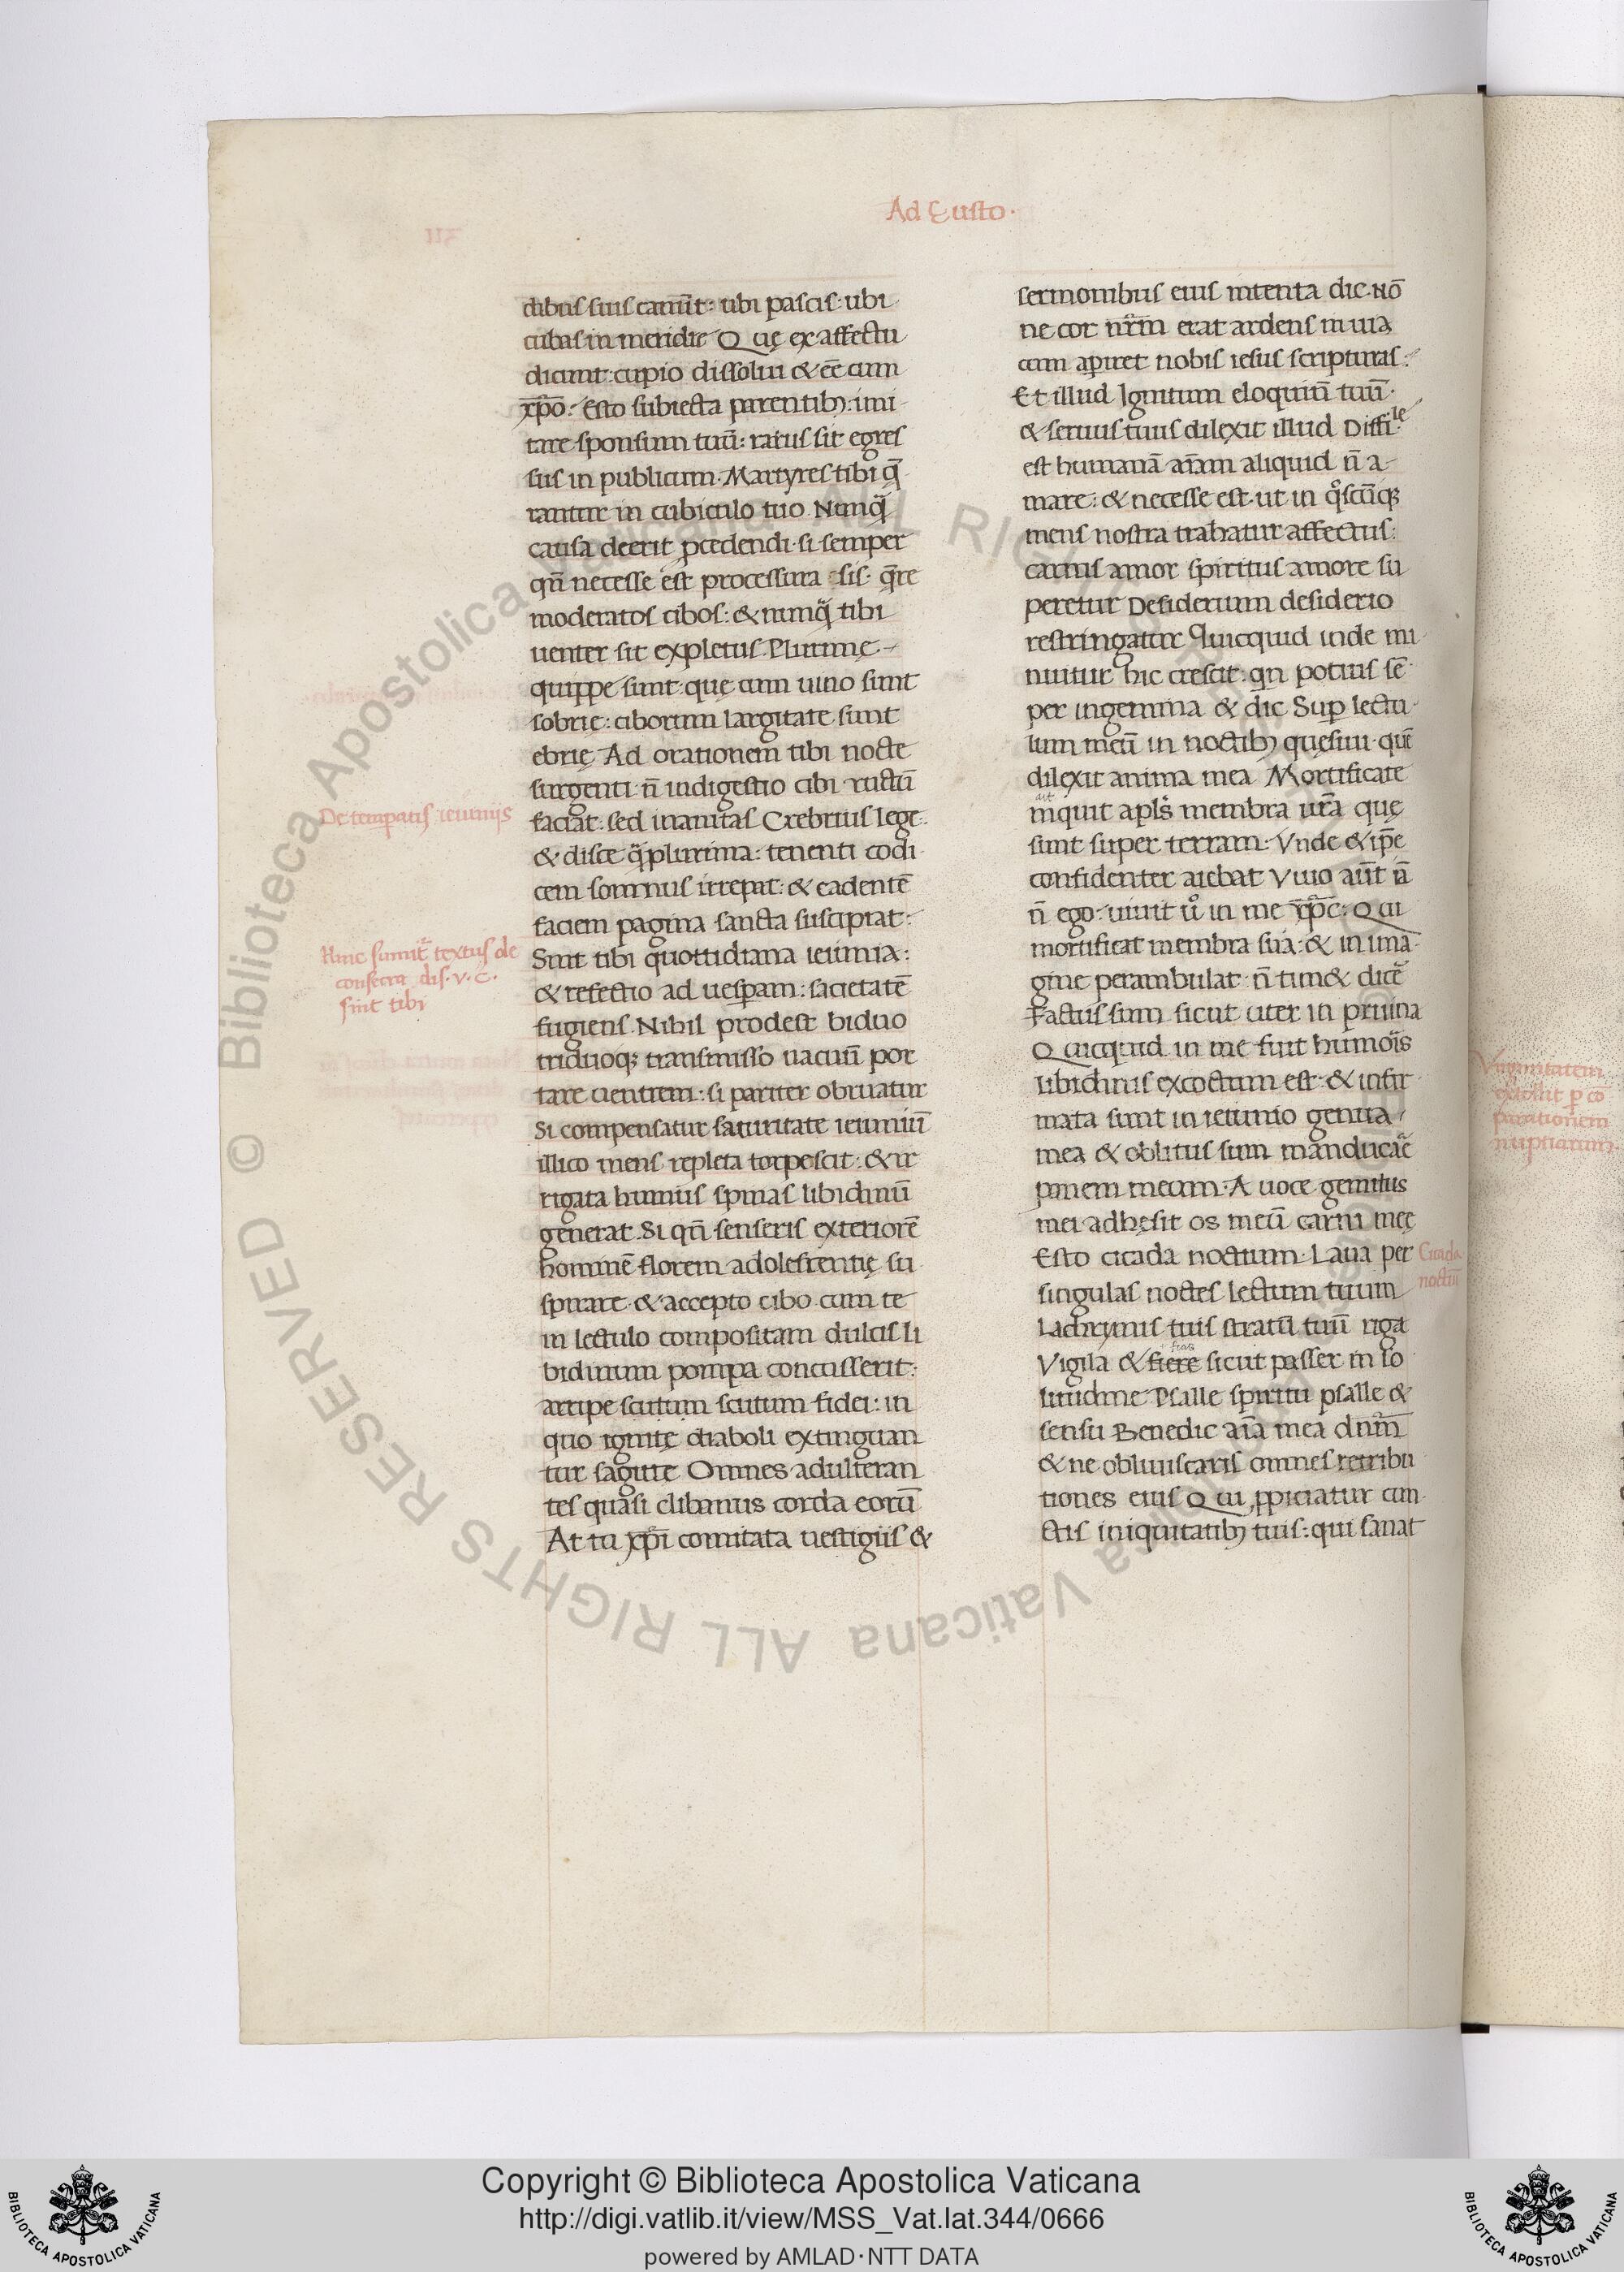 Ad Eusto·
dibus suis canūt: ubi pascis: ubi
cubas in meridie Quę ex affectu
dicunt: cupio dissolui & eē cum
xp̄o: Esto subiecta parentib; imi
tare sponsum tuū: rarus sit egres
sus in publicum. Martyres tibi q̄
rantur in cubiculo tuo Nunq̄
causa deerit p̄cedendi· si semper
qn̄ necesse est processura sis· q̄re
moderatos cibos: & nunq̄ tibi
uenter sit expletus. Plurimę
quippe sunt: quę cum uino sint
sobrię: ciborum largitate sunt
ebrię Ad orationem tibi nocte
surgenti n̄ indigestio cibi ructū
faciat: sed inanitas Crebrius lege:
& disce q̄plurima: tenenti codi
cem somnus irrepat: & cadentē
faciem pagina sancta suscipiat:
Sint tibi quottidiana ieiunia:
& refectio ad uesp̄am: sacietatē
fugiens. Nihil prodest biduo
triduoq; transmisso uacuū por
tare uentrem: si pariter obruatur
Si compensatur saturitate ieiuniū
illico mens repleta torpescit: & ir
rigata humus spinas libidinū
generat. Si qn̄ senseris exteriorē
hominē florem adolescentię su
spirare· & accepto cibo cum te
in lectulo compositam dulcis li
bidinum pompa concusserit:
arripe scutum scutum fidei: in
quo ignitę diaboli extinguan
tur sagitte Omnes adulteran
tes quasi clibanus corda eorū
At tu xp̄i comitata uestigiis &
De temp̄atis ieiunijs
Hinc sumit̄ textus de
consecra dis· v· C·
sint tibi
sermonibus eius intenta dic· Nō
ne cor nr̄m erat ardens in uia
cum aperiret nobis iesus scripturas:
Et illud Ignitum eloquiū tuū·
& seruus tuus dilexit illud Diffi·le
est humanā aīam aliquid n̄ a
mare: & necesse est· ut in q̊scūq;
mens nostra trahatur affectus:
carnis amor spiritus amore su
peretur Desiderium desiderio
restringatur Quicquid inde mi
nuitur hic crescit· qn potius sē
per ingemina & dic Sup̄ lectu
lum meū in noctib; quęsiui· quē
dilexit anima mea Mortificate
ait
inquit apl̄s membra ur̄a quę
sunt super terram· Vnde & ip̄e
confidenter aiebat Viuo aūt n̄
n̄ ego: uiuit u̇ in me xp̄c: Qui
mortificat membra sua: & in ima
gine perambulat n̄ tim& dicē
Factus sum sicut uter in pruina
Quicquid in me fuit humoīs
libidinis excoctum est· & infir
mata sunt in ieiunio genua
mea & oblitus sum manducāē
panem meum· A uoce gemitus
mei adhęsit os meū carni meę
Esto cicada noctium· Laua per
singulas noctes lectum tuum
Lachrymis tuis stratū tuū riga
Vigila & fiere sicut passer in so
litudine Psalle spiritu psalle &
sensu Benedic aīa mea dn̄m
& ne obliuiscaris omnes retribu
tiones eius Qui p̄piciatur cun
ctis iniquitatib; tuis: qui sanat
Cicada
noctiū
Virginitatem
p cō
parationem
nuptiarum
Copyright © Biblioteca Apostolica Vaticana
http://digi.vatlib.it/view/MSS_Vat.lat.344/0666
powered by AMLAD·NTT DATA
BIBLIOTECA APOSTOLICA VATICANA
BIBLIOTECA APOSTOLICA VATICANA
© Biblioteca Apostolica Vaticana ALL RIGHTS RESERVED